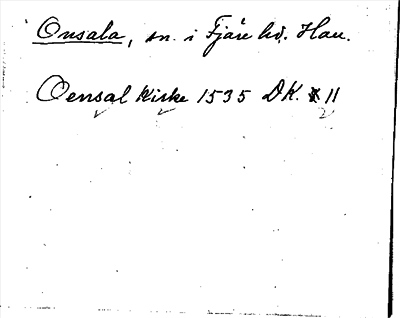 Onsala, sn. i Fjäre hd. Hall.
Oensal Kirke 1535 DK. II
2